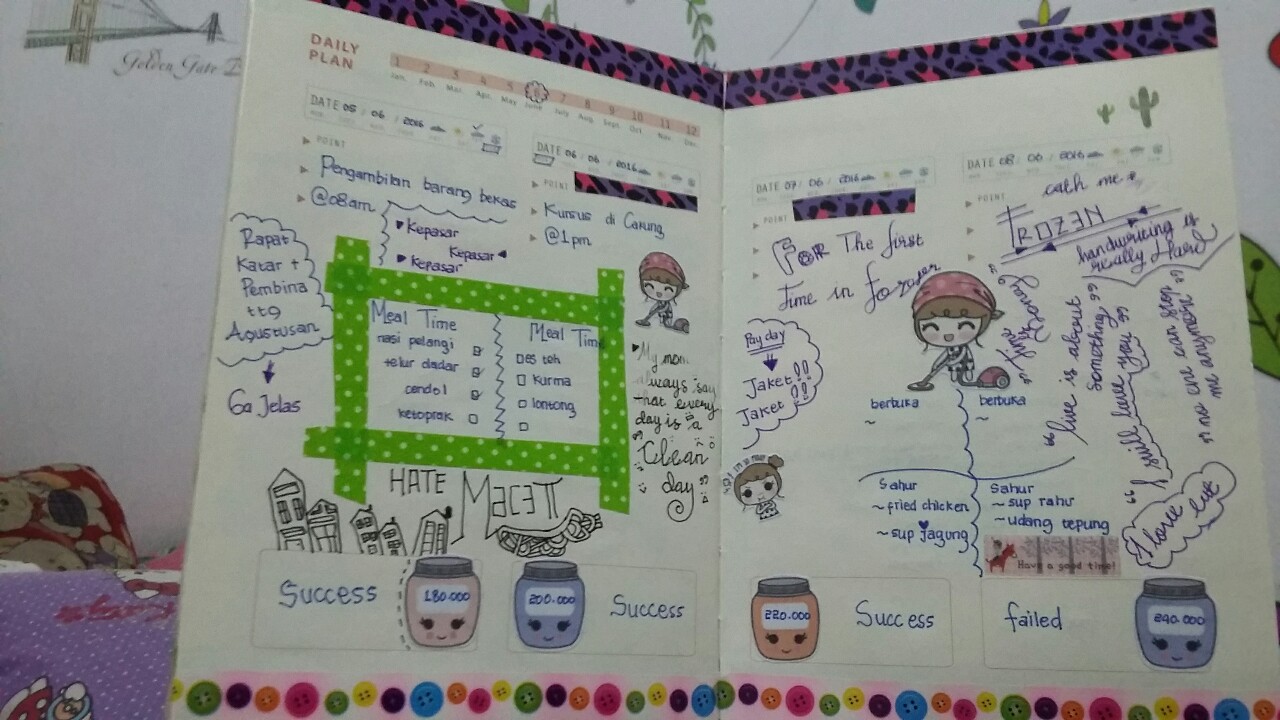 Golden Gate
DAILY
PLAN
1 2 3 4 5 6 7 8 9 10 11 12
Jan. Feb. Mar. Apr. May June July Aug. Sept. Oct. Nov. Dec.
DATE 05 / 06 / 2016
POINT
Pengambilan barang bekas
@08am
Kepasar
Kepasar
Kepasar
Rapat
Katar +
Pembina
ttg
Agustusan
Ga Jelas
DATE 06 / 06 / 2016
POINT
Kursus di Cakung
@1pm
Meal Time
nasi pelangi
telur dadar
cendol
ketoprak
Meal Time
es teh
kurma
lontong
My mom
always say
that every
day is a
Clean
day
HATE MacETT
Success
180.000
200.000
Success
DATE 07 / 06 / 2016
POINT
FOR The first
time in forever
Pay day
Jaket!!
Jaket!!
berbuka
~
Sahur
~fried chicken
~sup jagung
DATE 08 / 06 / 2016
POINT
cath me
FROZEN
handwriting is
really Hard
"live is about
something"
"I still love you"
"no one can stop
me anymore"
berbuka
~
Sahur
~sup tahu
~udang tepung
Have a good time!
220.000
Success
failed
240.000